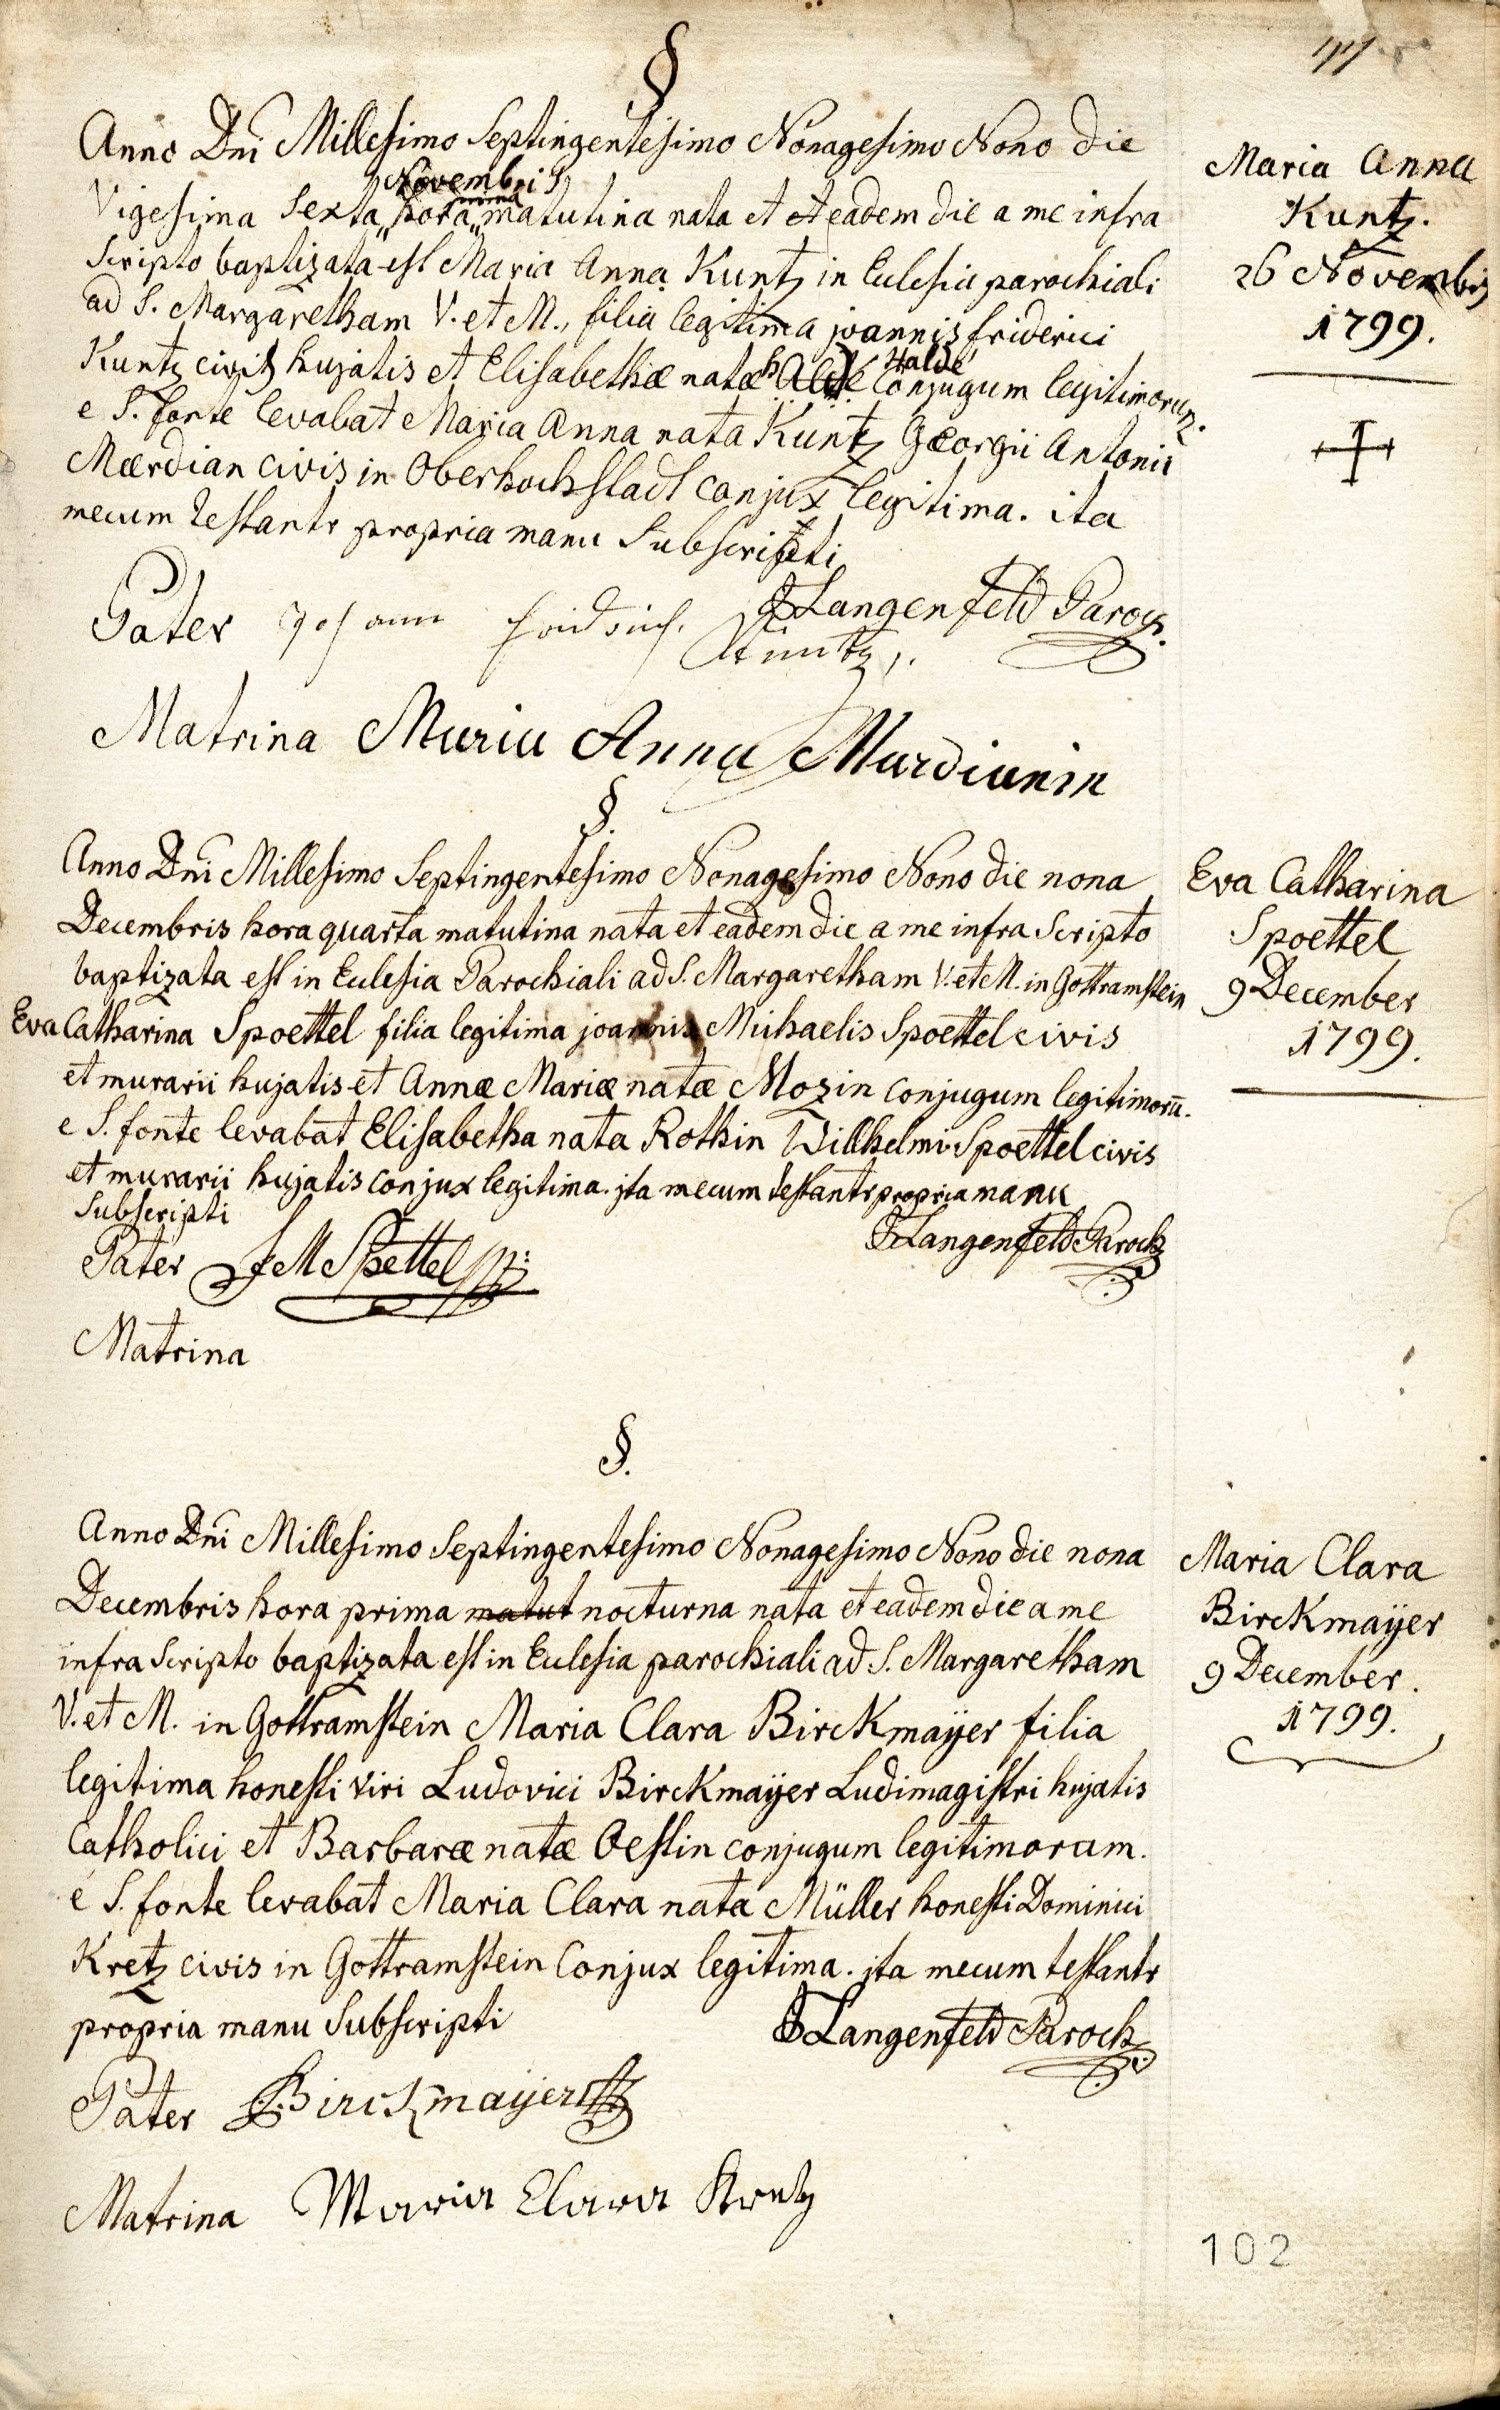 §
Anno Dni Millesimo Septingentesimo Nonagesimo Nono die
Novembris
prima
Vigesima Sexta„ hora„ matutina nata et eadem die a me infra
Scripto baptizata est Maria Anna Kuntz in Eclesia parochiali
ad S. Margaretham V. et M., filia legitima joannis friderici
Haldé
Kuntz civis hujatis et Elisabethæ natæ conjugum legitimorum.
e S. fonte levabat Maria Anna nata Kuntz Georgii Antonii
Mærdian civis in Oberhochstadt conjux legitima. ita
mecum testantr propria manu Subscripti
JLangenfeld Paroch.
Pater Johann fridrich Kuntz,.
Matrina Maria Anna Mardianin
Maria Anna
Kuntz.
26 Novembris
1799.
§.
Anno Dni Millesimo Septingentesimo Nonagesimo Nono die nona
Decembris hora quarta matutina nata et eadem die a me infra Scripto
baptizata est in Eclesia Parochiali ad S. Margaretham V. et M. in Gottramstein
Eva Catharina Spoettel filia legitima joannis Michaelis Spoettel civis
et murarii hujatis et Annæ Mariæ natæ Mozin conjugum legitimorū.
e S. fonte levabat Elisabetha nata Rothin Willhelmi Spoettel civis
et murarii hujatis conjux legitima. jta mecum testantr propria manu
Subscripti
JLangenfeld Paroch
Pater J M Spettel
Matrina
Eva Catharina
Spoettel
9 December
1799.
§.
Anno Dni Millesimo Septingentesimo Nonagesimo Nono die nona
Decembris hora prima matut nocturna nata et eadem die a me
infra Scripto baptizata est in Eclesia parochiali ad S. Margaretham
V. et M. in Gottramstein Maria Clara Birckmaÿer filia
legitima honesti viri Ludovici Birckmaÿer Ludimagistri hujatis
Catholici et Barbaræ natæ Oestin conjugum legitimorum.
e S. fonte levabat Maria Clara nata Müller honesti Dominici
Kretz civis in Gottramstein Conjux legitima. jta mecum testantr
propria manu Subscripti
JLangenfeld Paroch
Pater L. Birckmaÿer
Matrina Maria Clara Kretz
Maria Clara
Birckmaÿer
9 December.
1799.
102